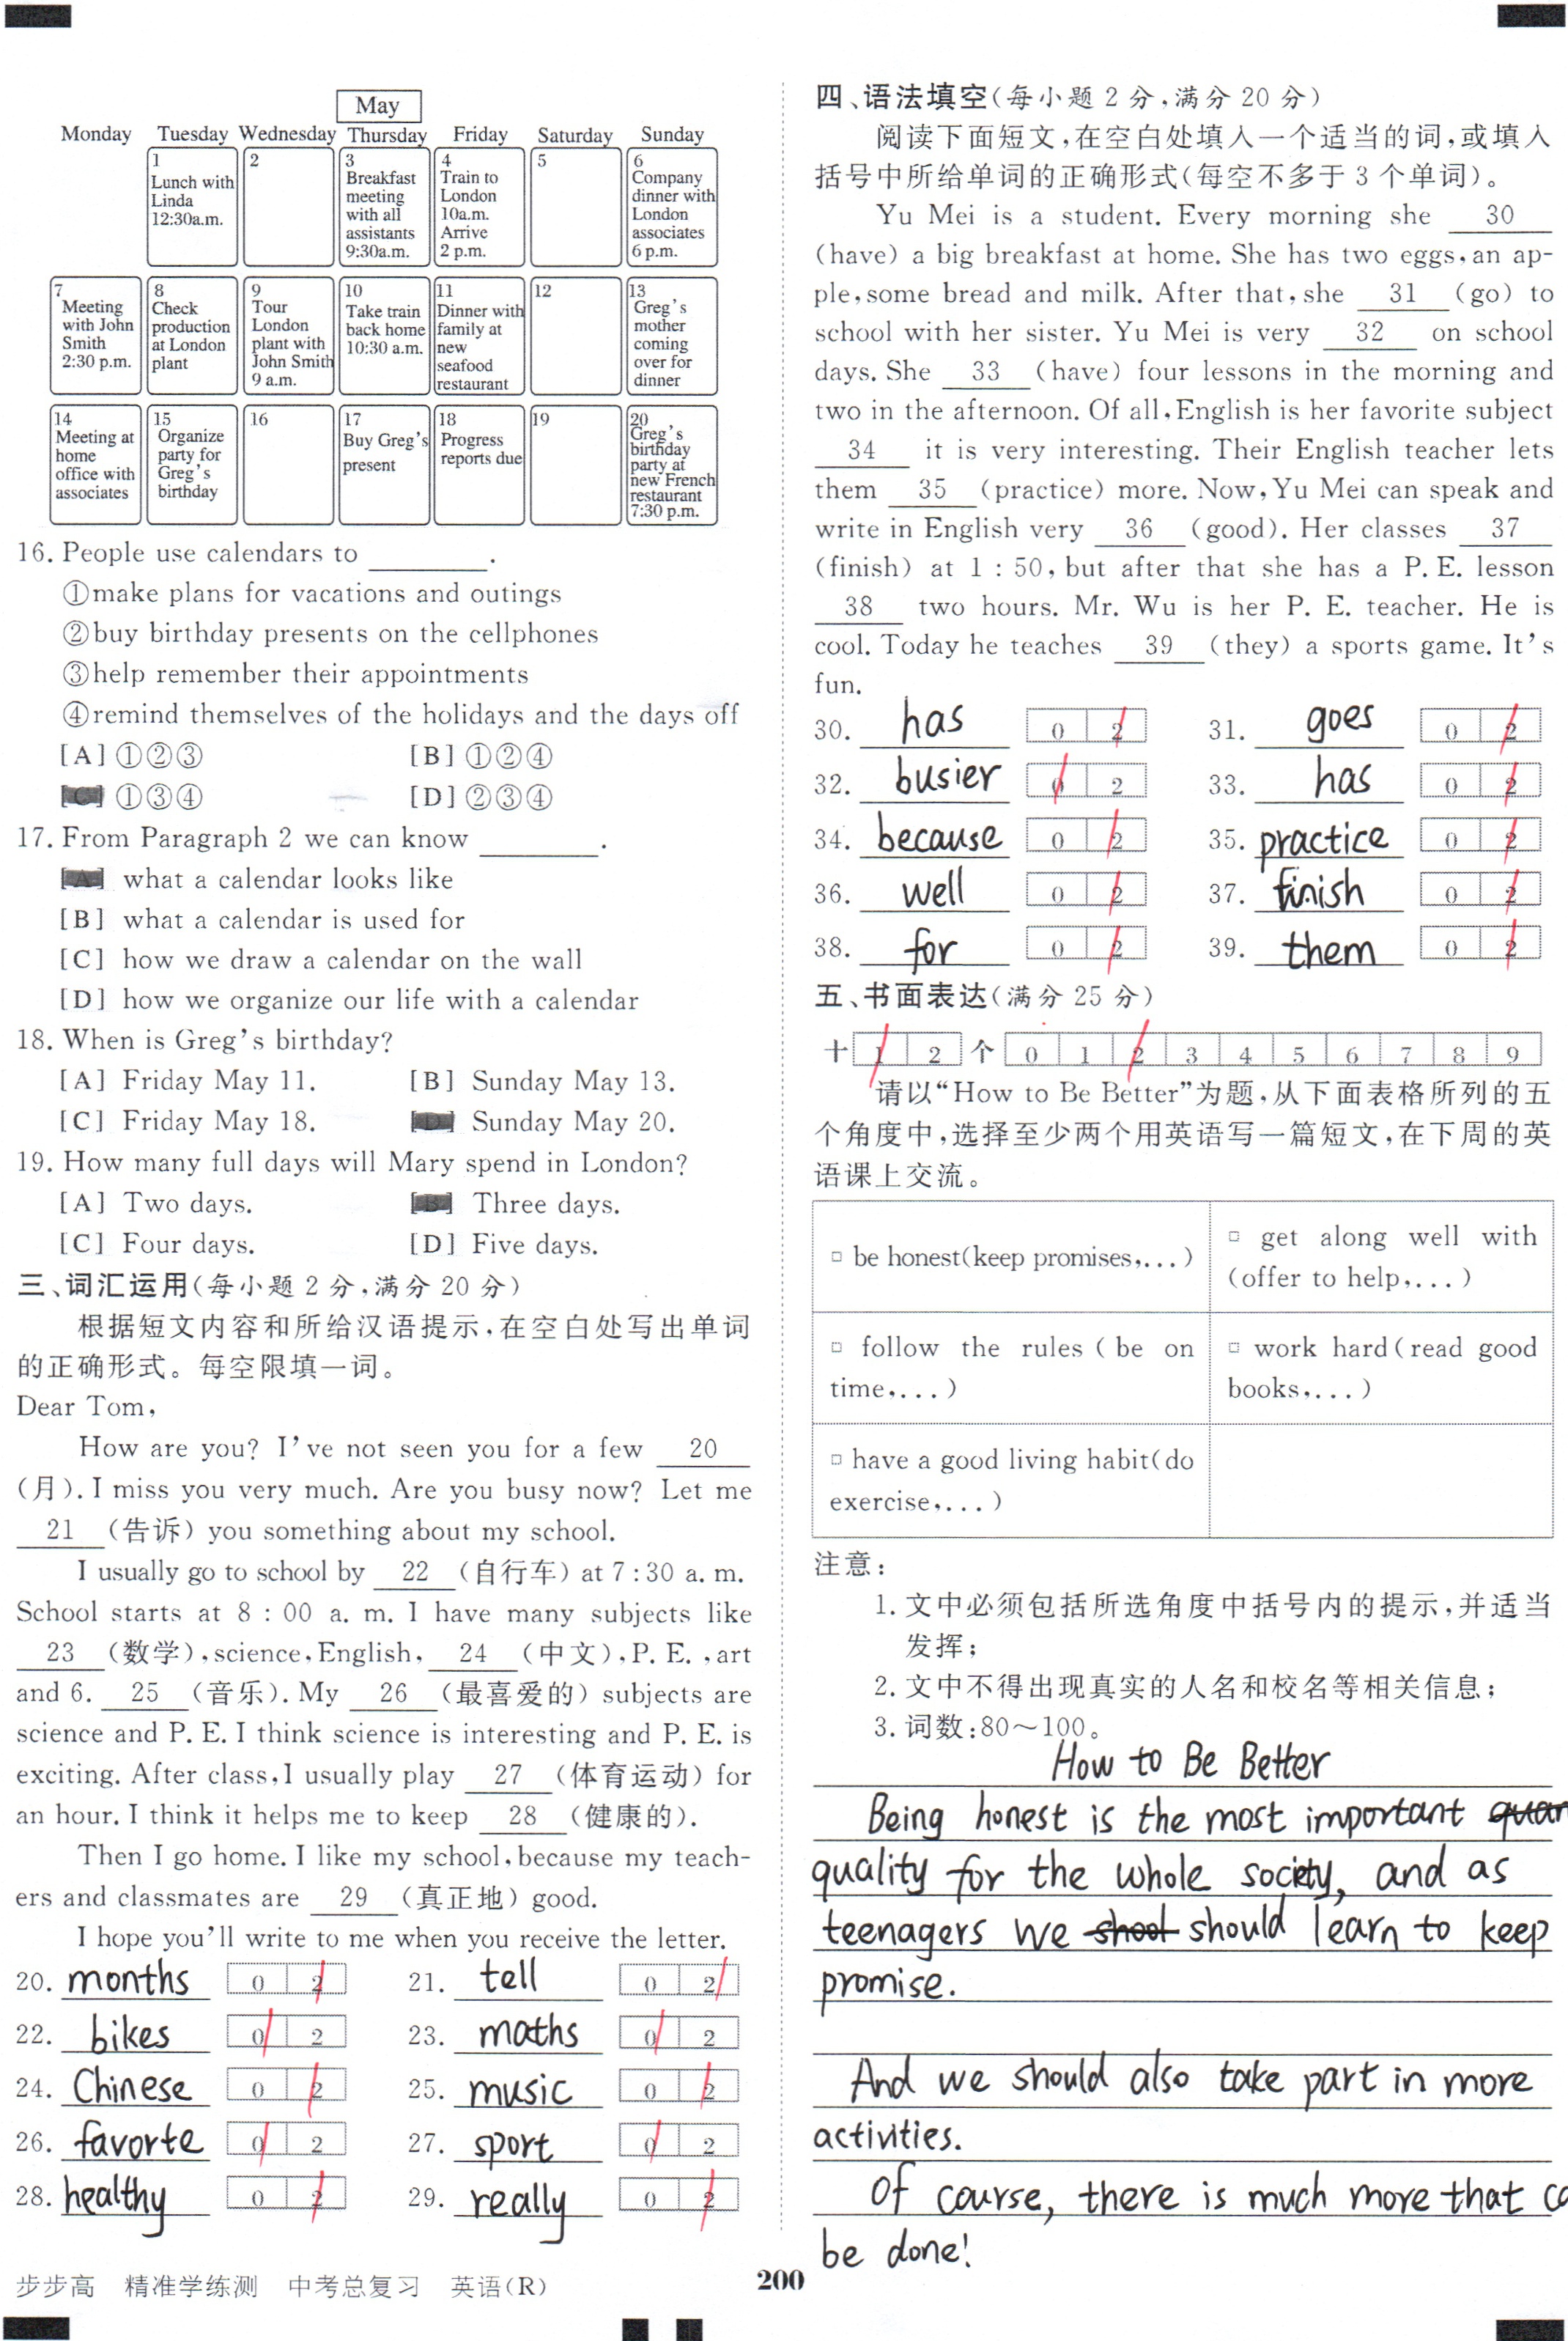 May
Monday Tuesday Wednesday Thursday Friday Saturday Sunday
1
Lunch with
Linda
12:30a.m.
2
3
Breakfast
meeting
with all
assistants
9:30a.m.
4
Train to
London
10a.m.
Arrive
2 p.m.
5
6
Company
dinner with
London
associates
6 p.m.
7
Meeting
with John
Smith
2:30 p.m.
8
Check
production
at London
plant
9
Tour
London
plant with
John Smith
9 a.m.
10
Take train
back home
10:30 a.m.
11
Dinner with
family at
new
seafood
restaurant
12
13
Greg's
mother
coming
over for
dinner
14
Meeting at
home
office with
associates
15
Organize
party for
Greg's
birthday
16
17
Buy Greg's
present
18
Progress
reports due
19
20
Greg's
birthday
party at
new French
restaurant
7:30 p.m.
16. People use calendars to ________.
①make plans for vacations and outings
②buy birthday presents on the cellphones
③help remember their appointments
④remind themselves of the holidays and the days off
[A] ①②③ [B] ①②④
[C] ①③④ [D] ②③④
17. From Paragraph 2 we can know ________.
[A] what a calendar looks like
[B] what a calendar is used for
[C] how we draw a calendar on the wall
[D] how we organize our life with a calendar
18. When is Greg's birthday?
[A] Friday May 11. [B] Sunday May 13.
[C] Friday May 18. [D] Sunday May 20.
19. How many full days will Mary spend in London?
[A] Two days. [B] Three days.
[C] Four days. [D] Five days.
三、词汇运用(每小题 2 分,满分 20 分)
根据短文内容和所给汉语提示,在空白处写出单词
的正确形式。每空限填一词。
Dear Tom,
How are you? I've not seen you for a few 20
(月). I miss you very much. Are you busy now? Let me
21 (告诉) you something about my school.
I usually go to school by 22 (自行车) at 7:30 a. m.
School starts at 8 : 00 a. m. I have many subjects like
23 (数学), science, English, 24 (中文), P. E. , art
and 6. 25 (音乐). My 26 (最喜爱的) subjects are
science and P. E. I think science is interesting and P. E. is
exciting. After class, I usually play 27 (体育运动) for
an hour. I think it helps me to keep 28 (健康的).
Then I go home. I like my school, because my teach-
ers and classmates are 29 (真正地) good.
I hope you'll write to me when you receive the letter.
20. months 0 2 21. tell 0 2
22. bikes 0 2 23. maths 0 2
24. Chinese 0 2 25. music 0 2
26. favorte 0 2 27. sport 0 2
28. healthy 0 2 29. really 0 2
四、语法填空(每小题 2 分,满分 20 分)
阅读下面短文,在空白处填入一个适当的词,或填入
括号中所给单词的正确形式(每空不多于 3 个单词)。
Yu Mei is a student. Every morning she 30
(have) a big breakfast at home. She has two eggs, an ap-
ple, some bread and milk. After that, she 31 (go) to
school with her sister. Yu Mei is very 32 on school
days. She 33 (have) four lessons in the morning and
two in the afternoon. Of all, English is her favorite subject
34 it is very interesting. Their English teacher lets
them 35 (practice) more. Now, Yu Mei can speak and
write in English very 36 (good). Her classes 37
(finish) at 1 : 50, but after that she has a P. E. lesson
38 two hours. Mr. Wu is her P. E. teacher. He is
cool. Today he teaches 39 (they) a sports game. It's
fun.
30. has 0 2 31. goes 0 2
32. busier 0 2 33. has 0 2
34. because 0 2 35. practice 0 2
36. well 0 2 37. finish 0 2
38. for 0 2 39. them 0 2
五、书面表达(满分 25 分)
十 1 2 个 0 1 2 3 4 5 6 7 8 9
请以“How to Be Better”为题,从下面表格所列的五
个角度中,选择至少两个用英语写一篇短文,在下周的英
语课上交流。
□ be honest(keep promises,...)
□ get along well with
(offer to help,...)
□ follow the rules ( be on
time,...)
□ work hard(read good
books,...)
□ have a good living habit(do
exercise,...)
注意:
1. 文中必须包括所选角度中括号内的提示,并适当
发挥;
2. 文中不得出现真实的人名和校名等相关信息;
3. 词数:80～100。
How to Be Better
Being honest is the most important
quality for the whole society, and as
teenagers we should learn to keep
promise.
And we should also take part in more
activities.
Of course, there is much more that
be done!
步步高 精准学练测 中考总复习 英语(R)
200